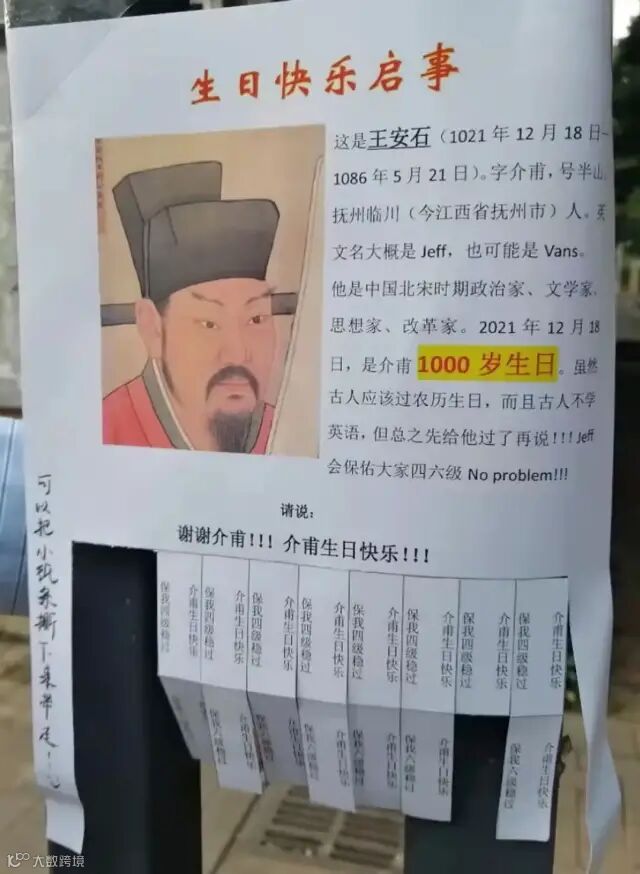 生日快乐启事
这是王安石（1021 年 12 月 18 日—
1086 年 5 月 21 日）。字介甫，号半山，
抚州临川（今江西省抚州市）人。英
文名大概是 Jeff，也可能是 Vans。
他是中国北宋时期政治家、文学家、
思想家、改革家。2021 年 12 月 18
日，是介甫 1000 岁生日。虽然
古人应该过农历生日，而且古人不学
英语，但总之先给他过了再说！！！Jeff
会保佑大家四六级 No problem!!!
请说：
谢谢介甫！！！ 介甫生日快乐！！！
可以把小纸条撕下来带走！
介甫生日快乐
保我四级稳过
介甫生日快乐
保我四级稳过
介甫生日快乐
保我四级稳过
介甫生日快乐
保我四级稳过
介甫生日快乐
保我四级稳过
介甫生日快乐
保我四级稳过
介甫生日快乐
保我四级稳过
介甫生日快乐
保我四级稳过
介甫生日快乐
保我六级稳过
介甫生日快乐
保我六级稳过
介甫生日快乐
保我六级稳过
介甫生日快乐
保我六级稳过
介甫生日快乐
保我六级稳过
介甫生日快乐
保我六级稳过
大数跨境